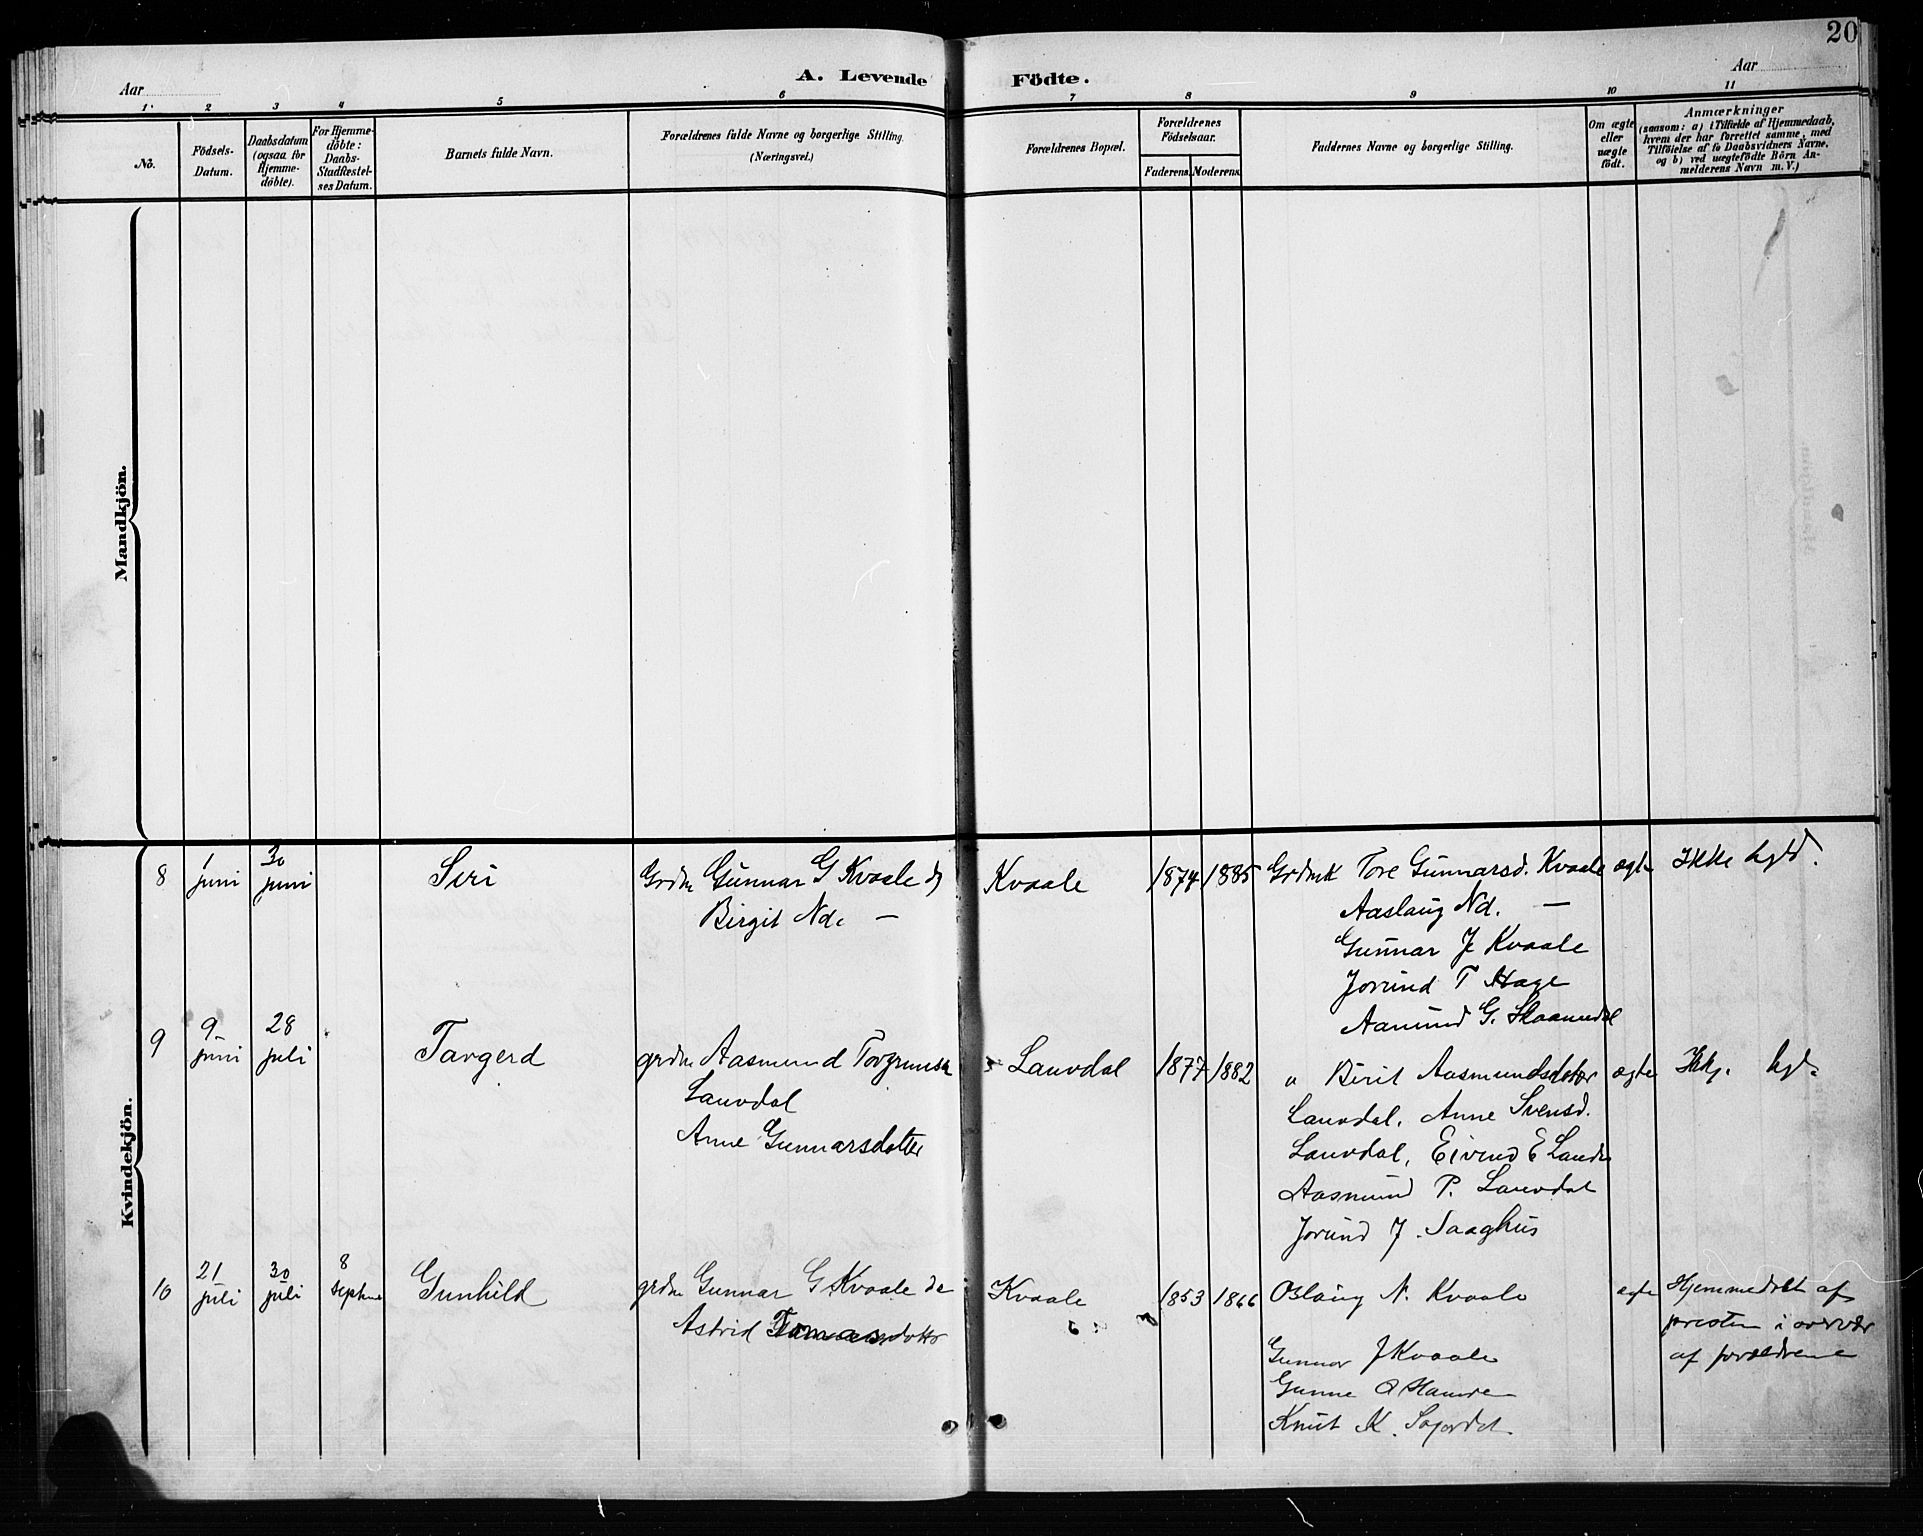 20
A. Levende Födte.
Aar
Aar
1 2 3 4 5 6 7 8 9 10 11
No.
Födsels-
Datum.
Daabsdatum
(ogsaa for
Hjemme-
döbte).
For Hjemme-
döbte:
Daabs-
Stadfæstel-
ses Datum.
Barnets fulde Navn.
Forældrenes fulde Navne og borgerlige Stilling.
(Næringsvei.)
Forældrenes Bopæl.
Forældrenes
Födselsaar.
Faderens. Moderens.
Faddernes Navne og borgerlige Stilling.
Om ægte
eller
uægte
födt.
Anmærkninger
(saasom: a) i Tilfælde af Hjemmedaab,
hvem der har forrettet samme, med
Tilföielse af to Daabsvidners Navne,
og b) ved uægtefödte Börn An-
melderens Navn m. V.)
Mandkjön.
Kvindekjön.
8
1
juni
30
juni
Siri
Grdm Gunnar G Kvaale og
Birgit Nd. —
Kvaale
1874 1885
Grdmk Tore Gunnarsd. Kvaale
Aaslaug Nd. —
Gunnar J Kvaale
Jorund T Hage
Aamund G.
ægte
Ikke
9
9
juni
28
juli
Targerd
grdm Aasmund Torgrimss
Lauvdal
Anne Gunnarsdotter
Lauvdal
1877 1882
Birit Aasmundsdotter
Lauvdal, Anne Svensd.
Lauvdal, Eivind E
Aasmund P. Lauvdal
Jorund J.
ægte
10
21
juli
30
juli
8
septem
Gunhild
grdm Gunnar G Kvaale
Astrid
Kvaale
1853 1866
Oslaug N. Kvaale
Gunnar J Kvaale
Gunne O
Knut K.
ægte
Hjemmedøbt af
presten i overvær
af forældrene